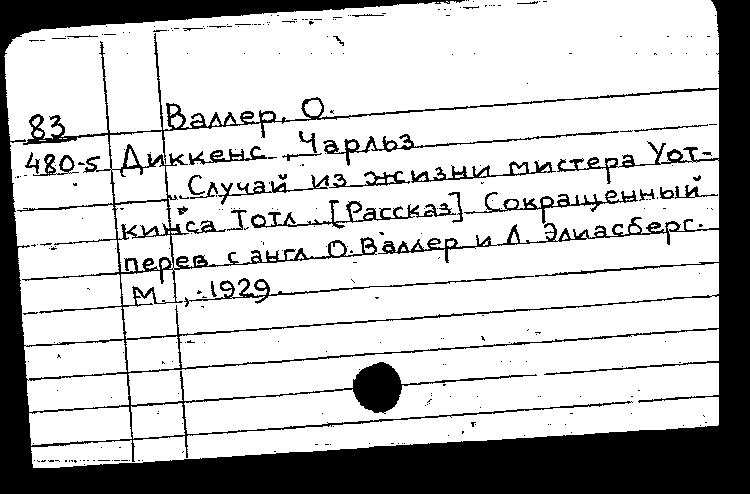 Валлер, О.
83
480-5 Диккенс, Чарльз
„Случай из жизни мистера Уот-
кинса Тотл„. [Рассказ] Сокращенный
перев. с англ. О. Валлер и Л. Элиасберг.
М., 1929.